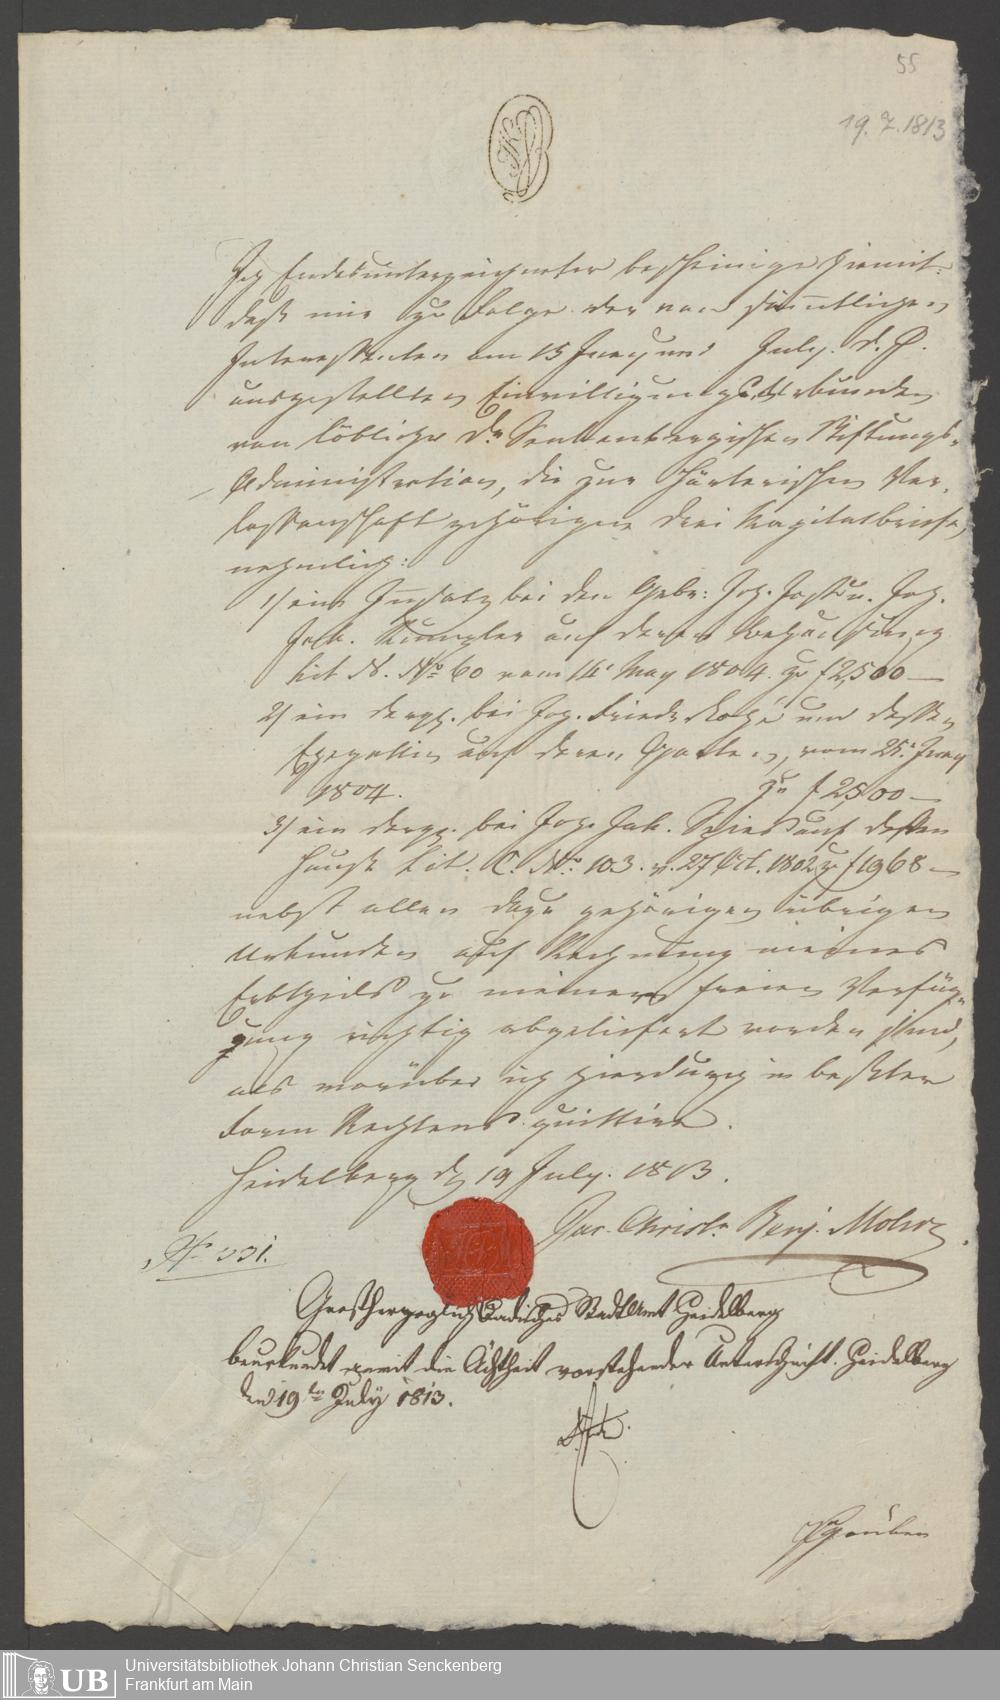 55
19. 7. 1813
Ich Endesunterzeichneter bescheinige hiemit:
daß mir zu Folge der von sämmtlichen
Interessenten am 15 Juny und July d. J.
ausgestellten Einwilligungs Urkunden
von löblicher Dr Senkenbergischen Stiftungs-
Administration, die zur Verlassenschaft
lassenschaft gehörigen drei Kapitalbriefe,
nehmlich:
1/ ein Insatz bei den Gebr: Joh. Jost u. Joh.
Jak. auf deren Behausung
Lit. No 60 vom 14t May 1804. zu f 2,500 —
2/ ein dergl. bei Joh. Friedr und dessen
auf deren Garten, vom 25t Juny
1804. zu f 2500 —
3/ ein dergl. bei Joh. Jak. Spies auf dessen
Hauß Lit. C. No. 103. v. 27 Oct. 1802 zu f 1968 —
nebst allen dazu gehörigen übrigen
Urkunden auf Rechnung meines
Erbtheils zu meiner freien Verfü-
gung richtig abgeliefert worden sind,
als worüber ich hierdurch in bester
Form Rechtens quittire.
Heidelberg d 19 July. 1813.
Christn Benj. Molwz
No 331.
Grosherzoglich Badisches Stadt Amt Heidelberg
beurkundet anmit die Ächtheit vorstehender Unterschrift. Heidelberg
den 19ten July 1813.
UB
Universitätsbibliothek Johann Christian Senckenberg
Frankfurt am Main